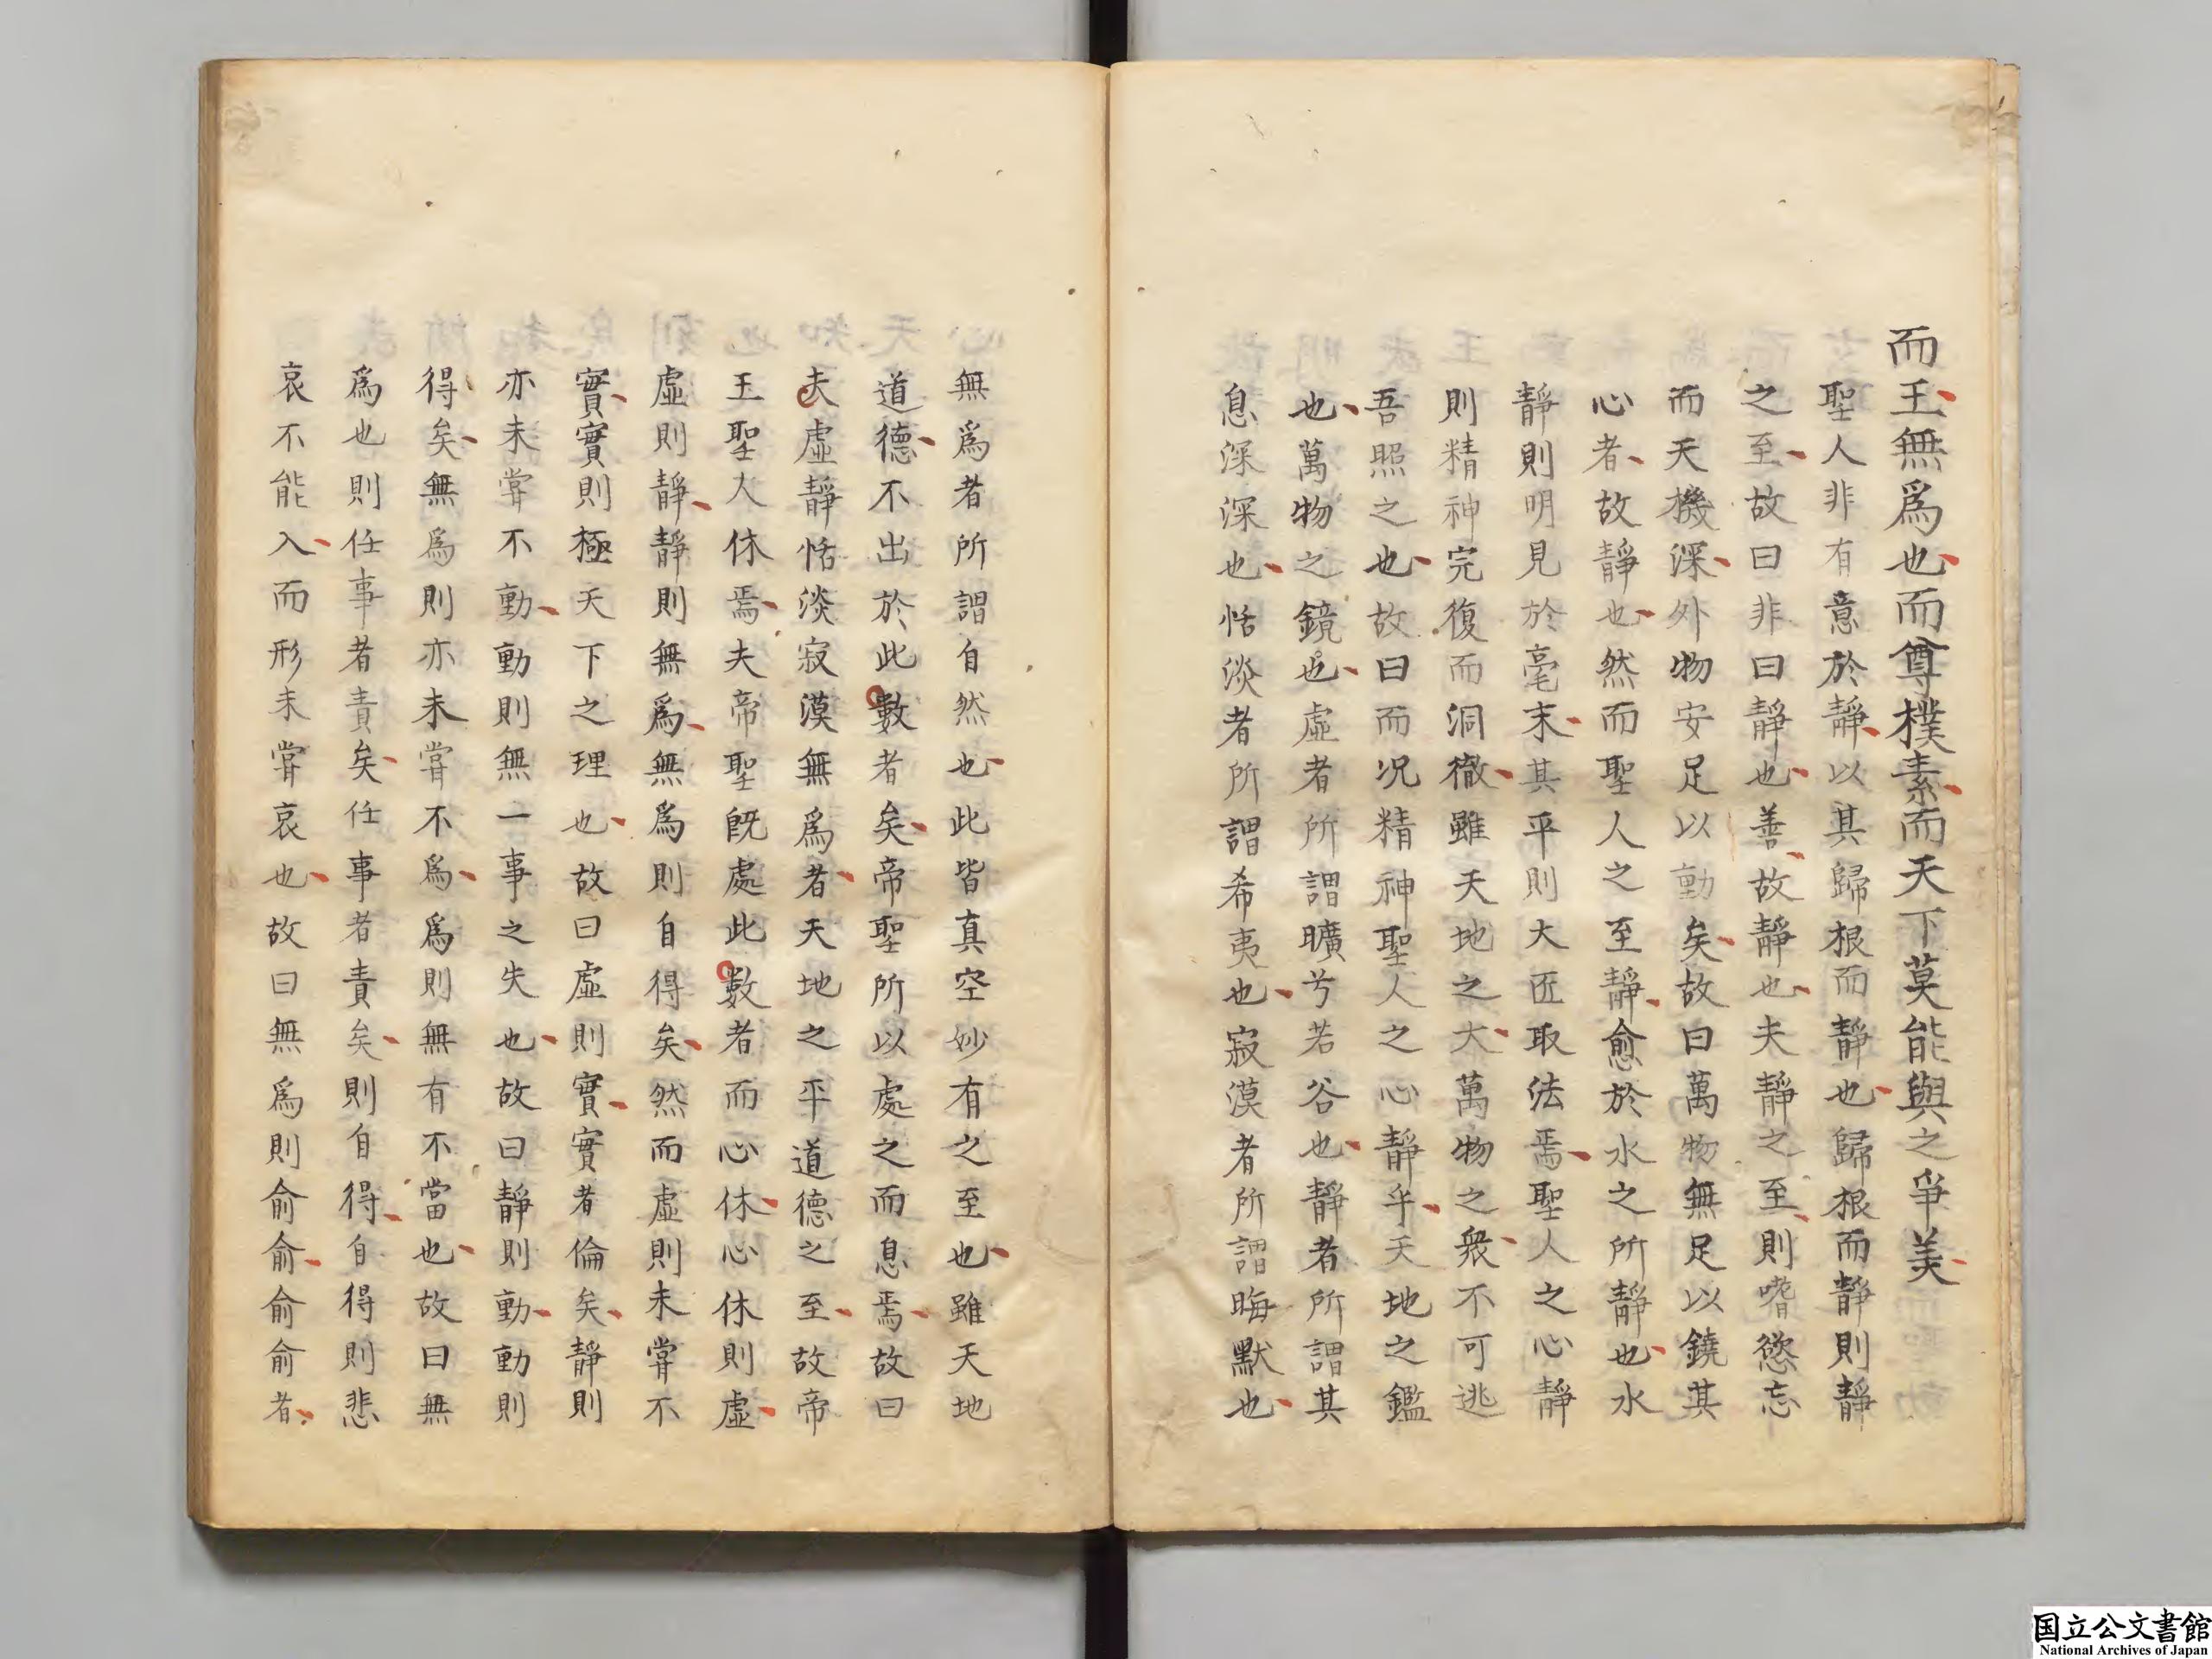 而王無爲也而尊樸素而天下莫能與之爭美
聖人非有意於靜以其歸根而靜也歸根而靜則靜
之至故曰非曰靜也善故靜也夫靜之至則嗜慾忘
而天機深外物安足以動矣故曰萬物無足以鐃其
心者故靜也然而聖人之至靜愈於水之所靜也水
靜則明見於毫末其平則大匠取法焉聖人之心靜
則精神完復而洞徹雖天地之大萬物之衆不可逃
吾照之也故曰而况精神聖人之心靜乎天地之鑑
也萬物之鏡也虛者所謂曠兮若谷也靜者所謂其
息深深也恬淡者所謂希夷也寂漠者所謂晦默也
無爲者所謂自然也此皆真空妙有之至也雖天地
道德不出於此數者矣帝聖所以處之而息焉故曰
夫虛靜恬淡寂漠無爲者天地之平道德之至故帝
王聖人休焉夫帝聖旣處此數者而心休心休則虛
虛則靜靜則無爲無爲則自得矣然而虛則未甞不
實實則極天下之理也故曰虛則實實者倫矣靜則
亦未甞不動動則無一事之失也故曰靜則動動則
得矣無爲則亦未甞不爲爲則無有不當也故曰無
爲也則任事者責矣任事者責矣則自得自得則悲
哀不能入而形未甞哀也故曰無爲則俞俞俞俞者
国立公文書館
National Archives of Japan